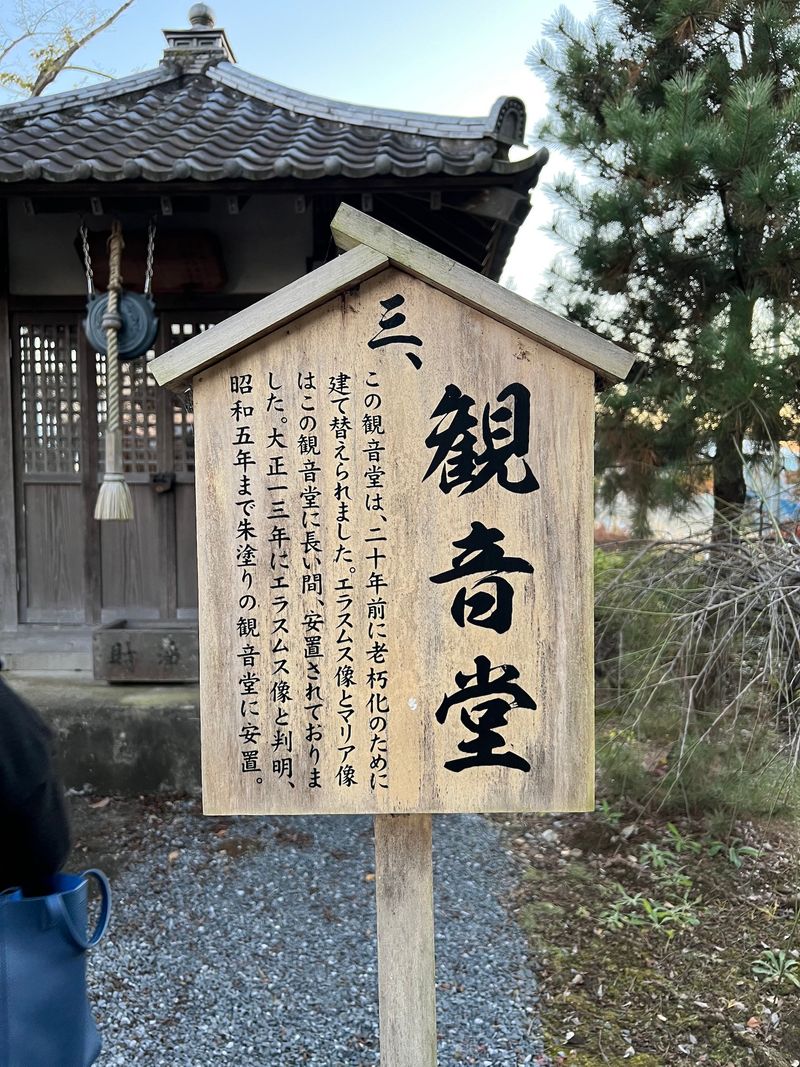 三、
観音堂
この観音堂は、二十年前に老朽化のために
建て替えられました。エラスムス像とマリア像
はこの観音堂に長い間、安置されておりま
した。大正一三年にエラスムス像と判明、
昭和五年まで朱塗りの観音堂に安置。
浄財